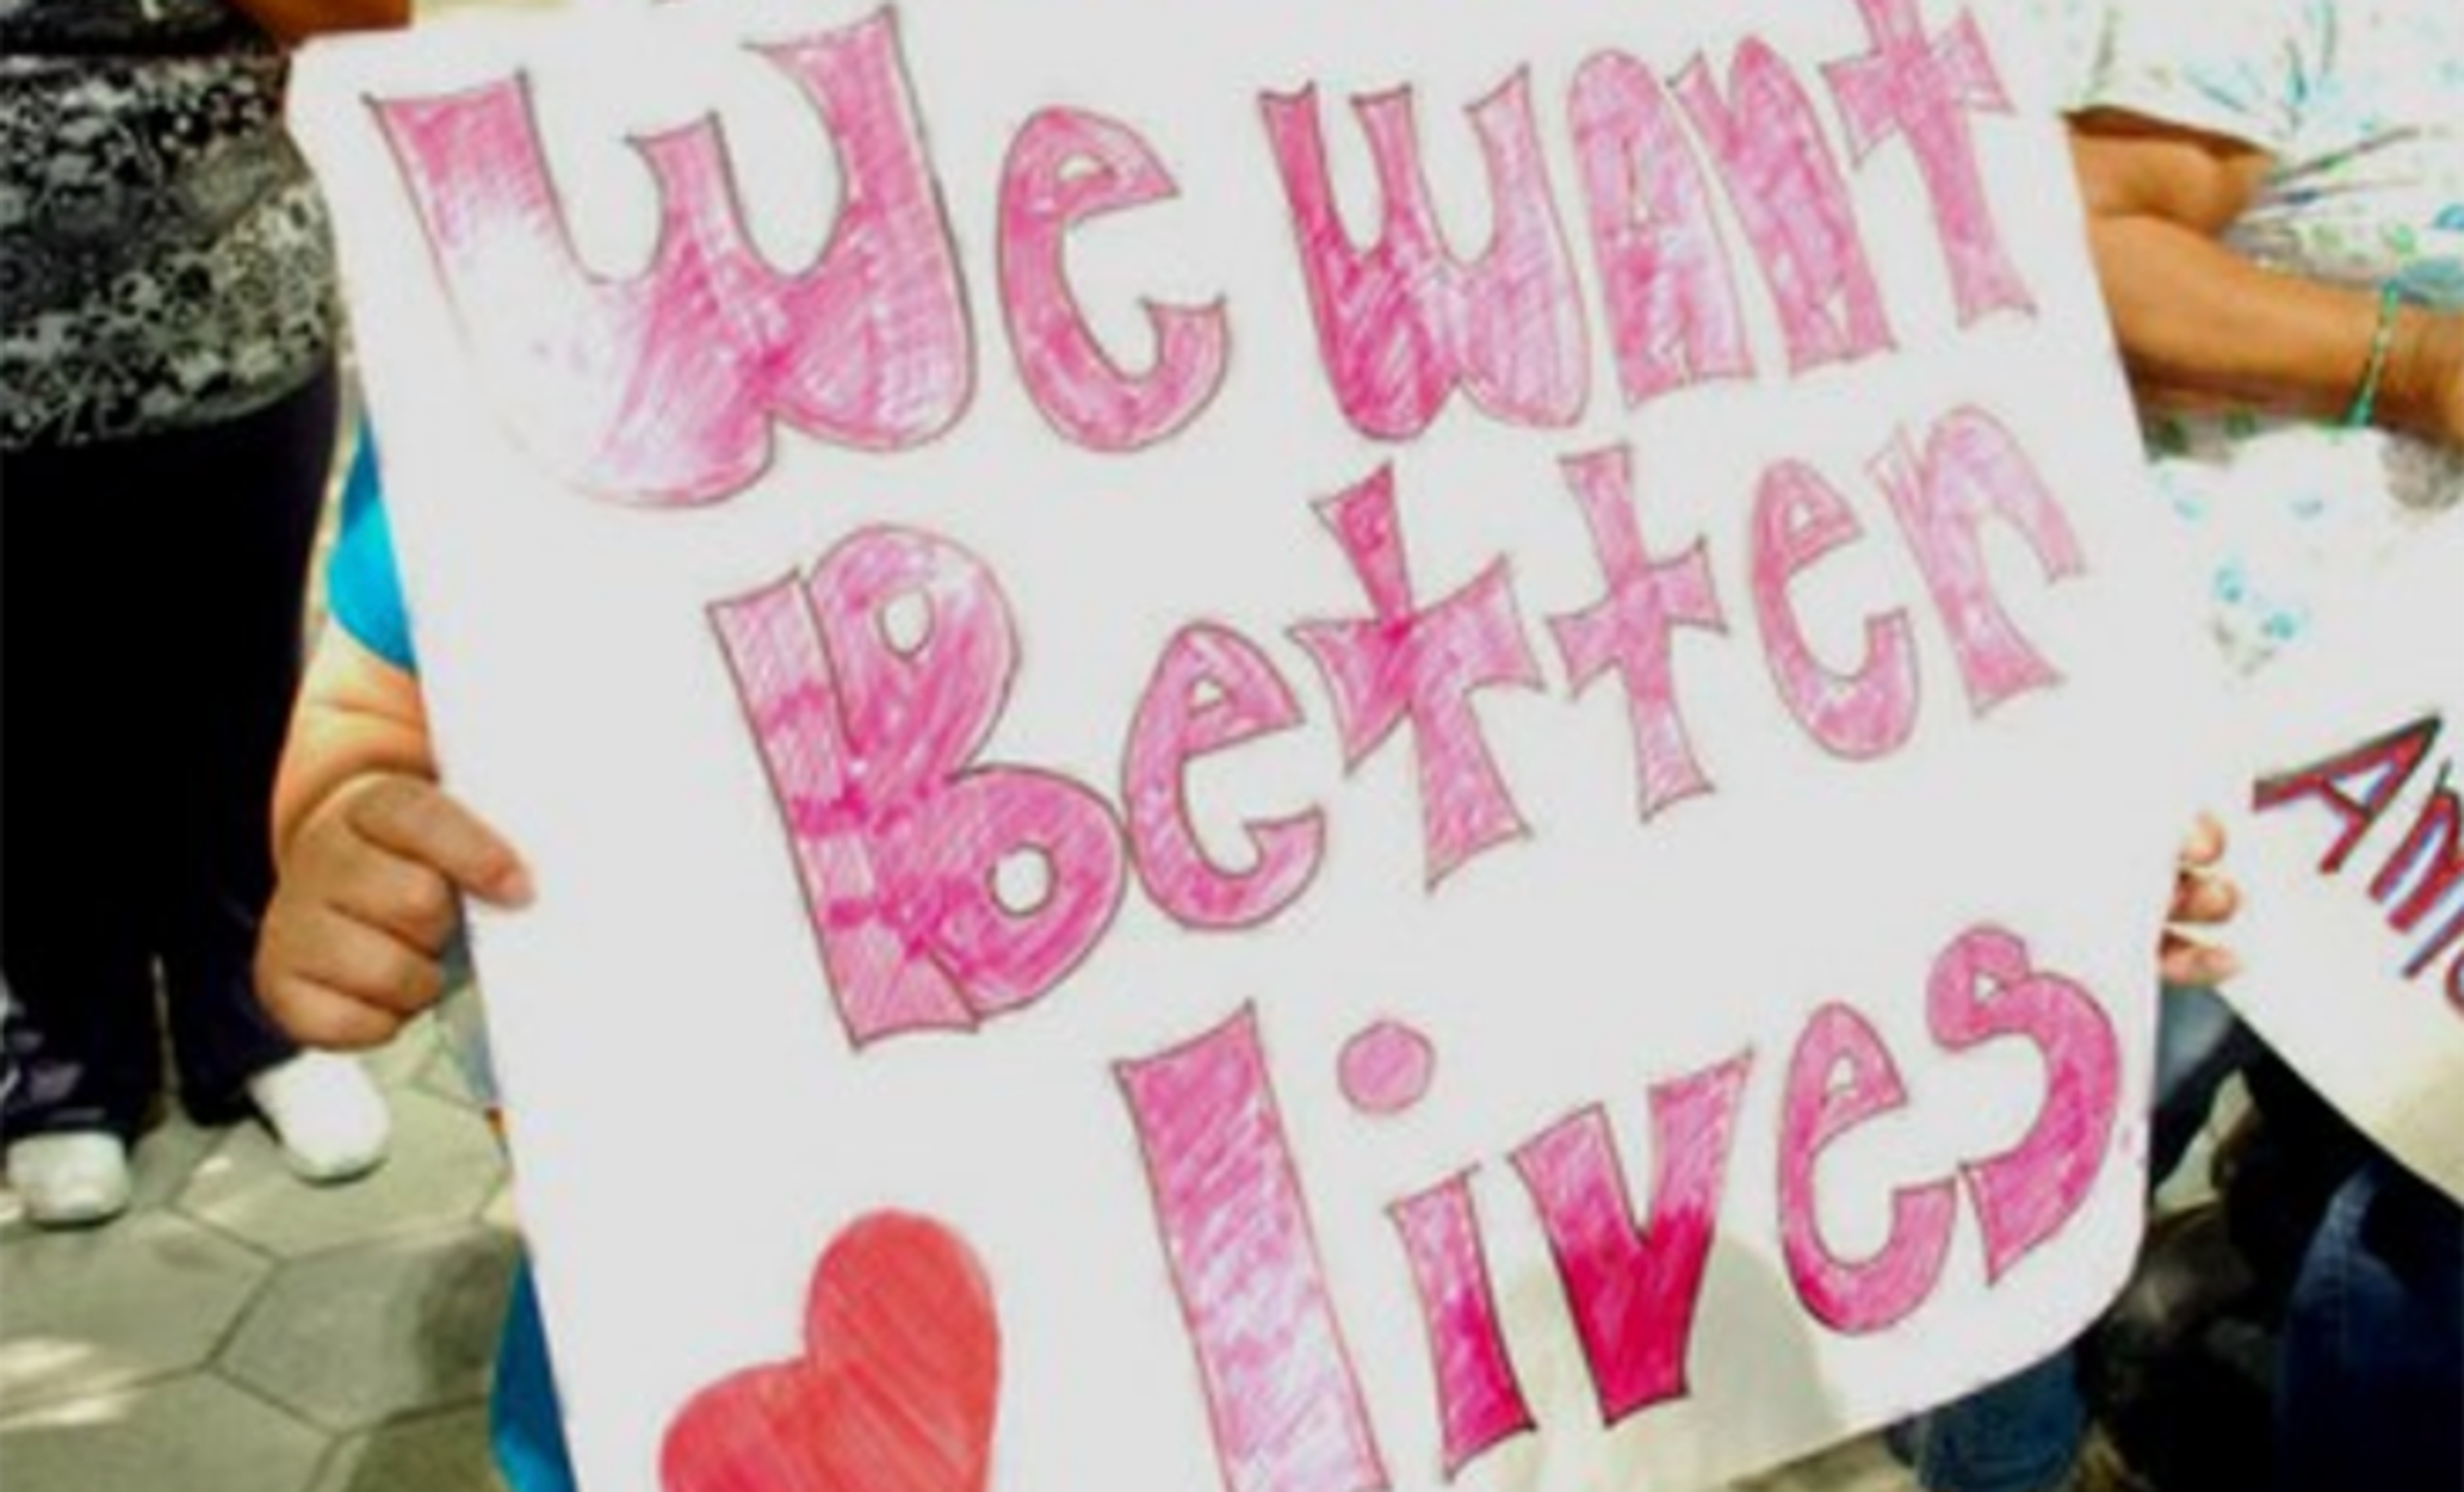 We want
Better
lives